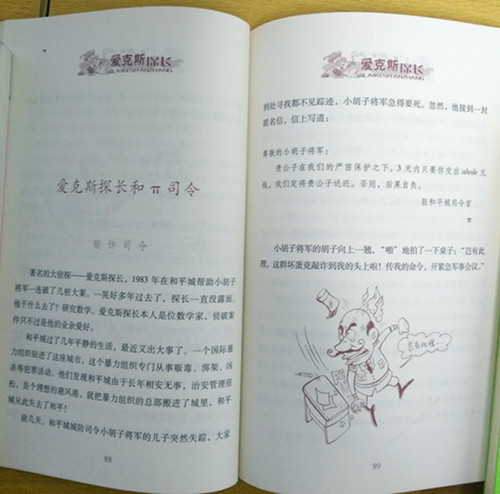 爱克斯探长
爱克斯探长和π司令
敲诈司令
著名的大侦探——爱克斯探长，1983年在和平城帮助小胡子
将军一连破了几桩大案。一晃好多年过去了，探长一直没露面。
他干什么去了？研究数学。爱克斯探长本人是位数学家，侦破案
件只不过是他的业余爱好。
和平城过了几年平静的生活，最近又出大事了。一个国际暴
力组织钻进了这座城市。这个暴力组织专门从事贩毒、绑架、凶
杀等犯罪活动。他们发现和平城由于长年相安无事，治安管理很
松，是个理想的避风港，就把暴力组织的总部搬进了城里，和平
城从此失去了和平！
前几天，和平城城防司令小胡子将军的儿子突然失踪，大家
88
爱克斯探长
到处寻找都不见踪迹，小胡子将军急得要死。忽然，他接到一封
匿名信，信上写道：
尊敬的小胡子将军：
贵公子在我们的严密保护之下。3天内只要你交出abcde元
钱，我们定将贵公子送还。否则，后果自负。
驻和平城司令官
π
小胡子将军的胡子向上一翘，“啪”地拍了一下桌子：“岂有
此理，这群坏蛋竟敲诈到我的头上啦！传我的命令，开紧急军事会议。”
岂有此理
89